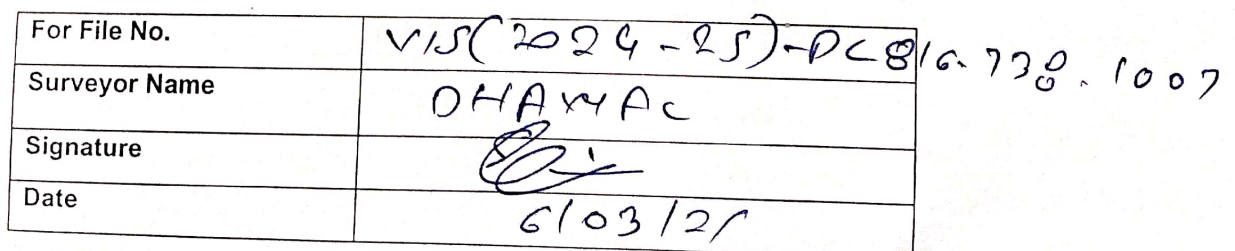 For File No. VIS(2024-25)-PL816.738.1007
Surveyor Name DHAWAL
Signature
Date 6/03/25